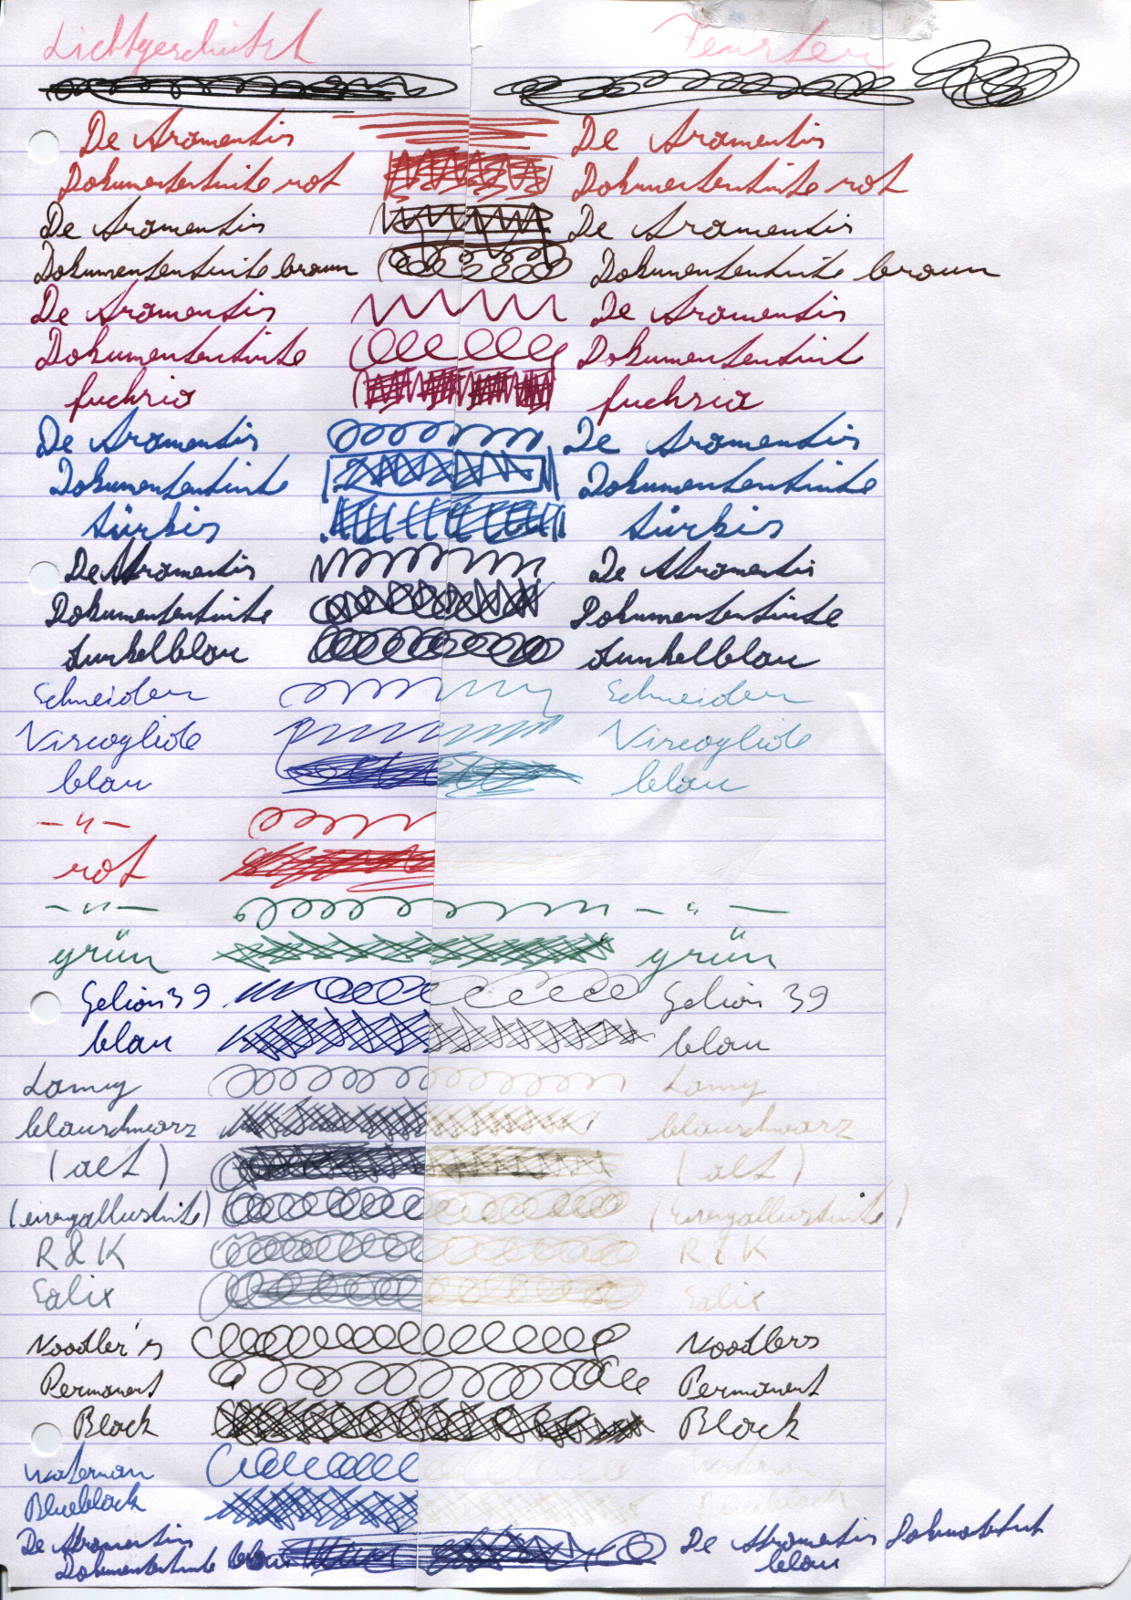 Lichtgeschützt Fenster
De Atramentis De Atramentis
Dokumententinte rot Dokumententinte rot
De Atramentis De Atramentis
Dokumententinte braun Dokumententinte braun
De Atramentis De Atramentis
Dokumententinte Dokumententint
fuchsia fuchsia
De Atramentis De Atramentis
Dokumententinte Dokumententinte
türkis türkis
De Atramentis De Atramentis
Dokumententinte Dokumententinte
dunkelblau dunkelblau
Schneider Schneider
Viscoglide Viscoglide
blau blau
—"—
rot
—"— —"—
grün grün
Gelion 39 Gelion 39
blau blau
Lamy Lamy
blauschwarz blauschwarz
(alt) (alt)
(eisengallustinte) (Eisengallustinte)
R&K R&K
Salix Salix
Noodler's Noodlers
Permanent Permanent
Black Black
Waterman Waterman
Blueblack Blueblack
De Atramentis De Atramentis
Dokumententinte blau blau